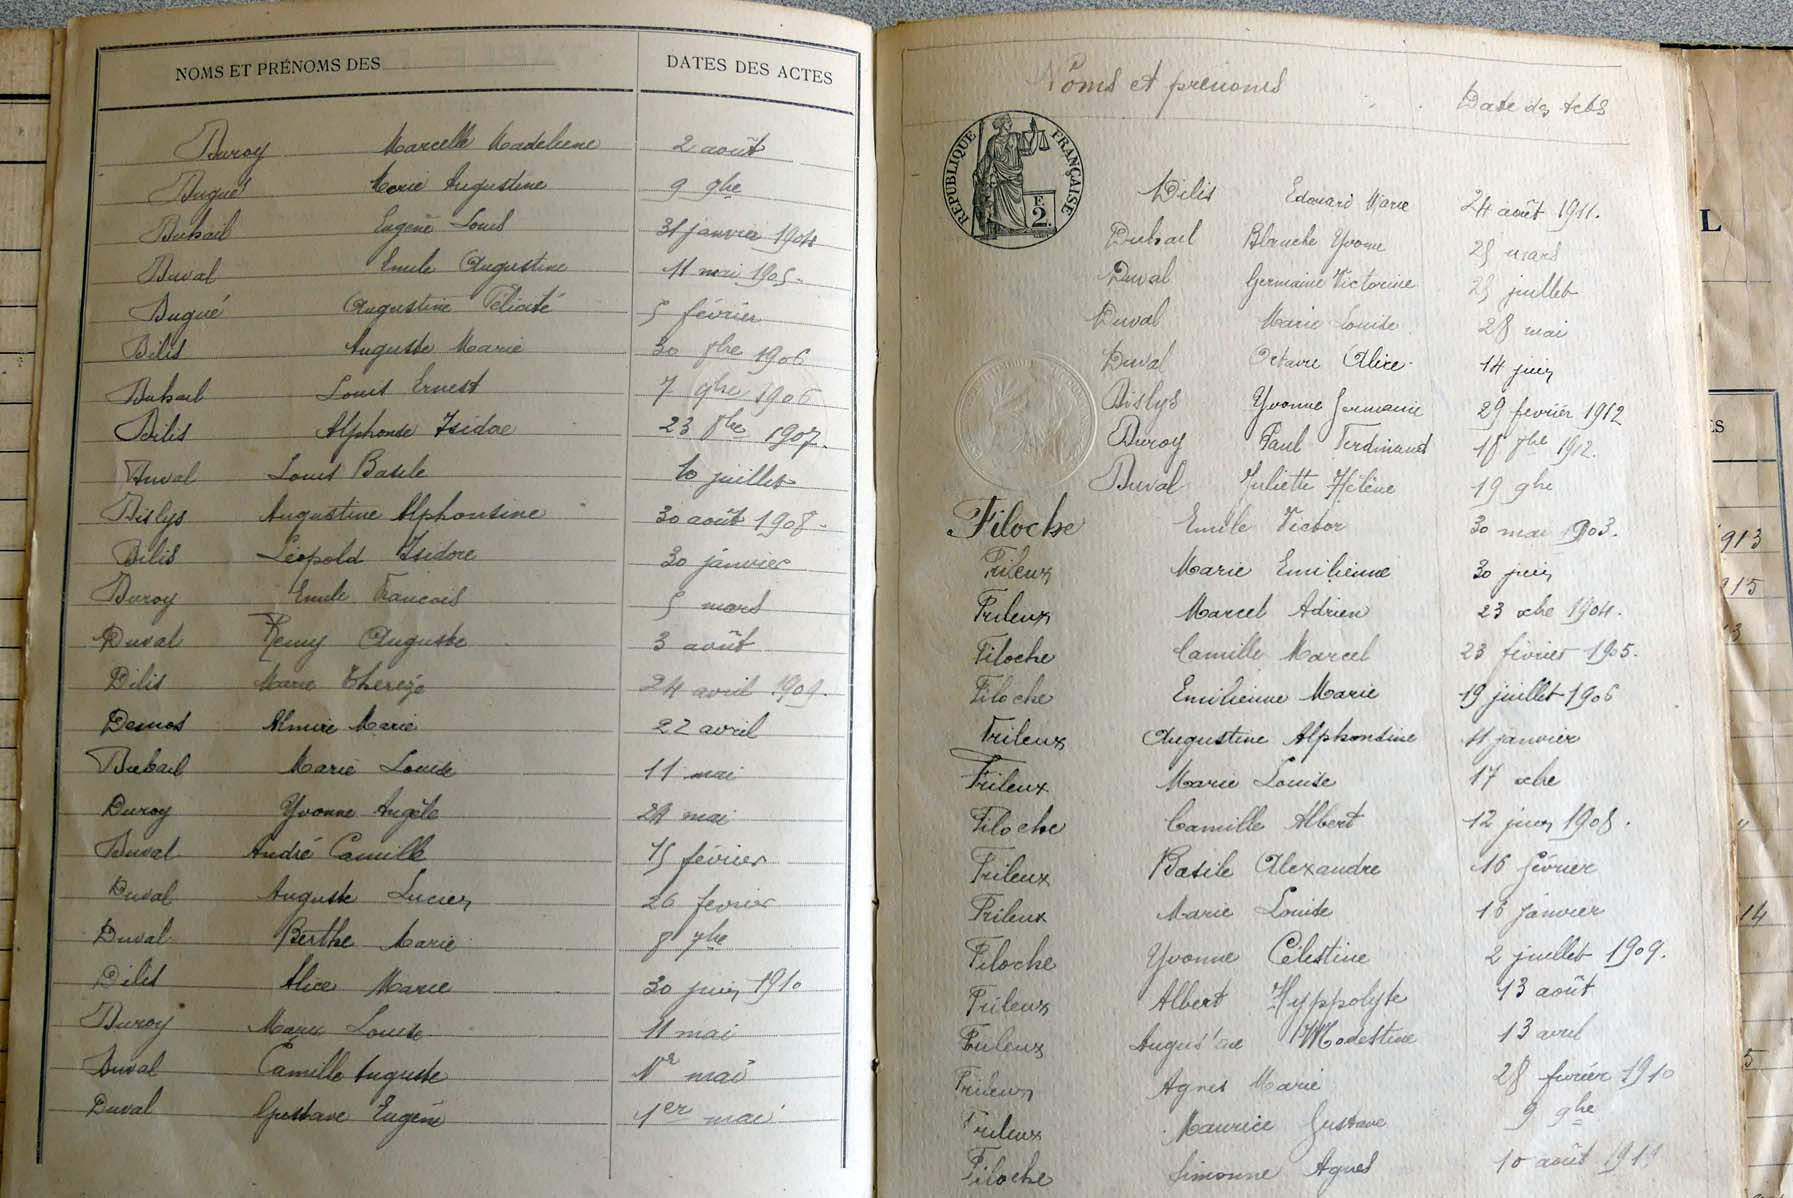 NOMS ET PRÉNOMS DES DATES DES ACTES
Duroy Marcelle Madeleine 2 août
Dugué Marie Augustine 9 9bre
Dubail Eugène Louis 31 janvier 1904
Duval Emile Augustine 11 mai 1905.
Dugué Augustine Félicité 5 février
Dilis Auguste Marie 30 8bre 1906
Dubail Louis Ernest 7 9bre 1906
Dilis Alphonse Isidoe 23 8bre 1907.
Duval Louis Basile 10 juillet
Dislys Augustine Alphonsine 30 août 1908.
Dilis Léopold Isidore 30 janvier
Duroy Emile Francois 5 mars
Duval Remy Auguste 3 août
Dilis Marie Thereze 24 avril 1909.
Demos Almire Marie 22 avril
Dubail Marie Louise 11 mai
Duroy Yvonne Angèle 24 mai
Duval André Camille 15 février
Duval Auguste Lucien 26 fevrier
Duval Berthe Marie 8 7bre
Dilis Alice Marie 30 juin 1910
Duroy Marie Louise 11 mai
Duval Camille Auguste 1er mai
Duval Gustave Eugène 1er mai
Noms et prénoms Date des Actes
REPUBLIQUE FRANÇAISE
F.
2
Dilis Edouard Marie 24 août 1911.
Dubail Blanche Yvonne 25 mars
Duval Germaine Victorine 25 juillet
Duval Marie Louise 28 mai
Duval Octavie Alice. 14 juin
Dislys Yvonne Germaine 29 fevriér 1912
Duroy Paul Ferdinand 18 9bre 1912.
Duval Juliette Hélène 19 9bre
Filoche Emile Victor 30 mai 1903.
Frileux Marie Emilienne 30 juin
Frileux Marcel Adrien 23 xbre 1904.
Filoche Camille Marcel 23 février 1905.
Filoche Emilienne Marie 19 juillet 1906
Frileux Augustine Alphonsine 11 janvier
Frileux Marie Louise 17 xbre
Filoche Camille Albert 12 juin 1908.
Frileux Basile Alexandre 16 février
Frileux Marie Louise 16 janvier
Filoche Yvonne Célestine 2 juillet 1909.
Frileux Albert Hyppolyte 13 août
Frileux Modestine 13 avril
Frileux Agnes Marie 28 février 1910
Frileux Maurice Gustave 9 9bre
Filoche Simonne Agnes 10 août 1911
L
ES
913
915
13
14
5